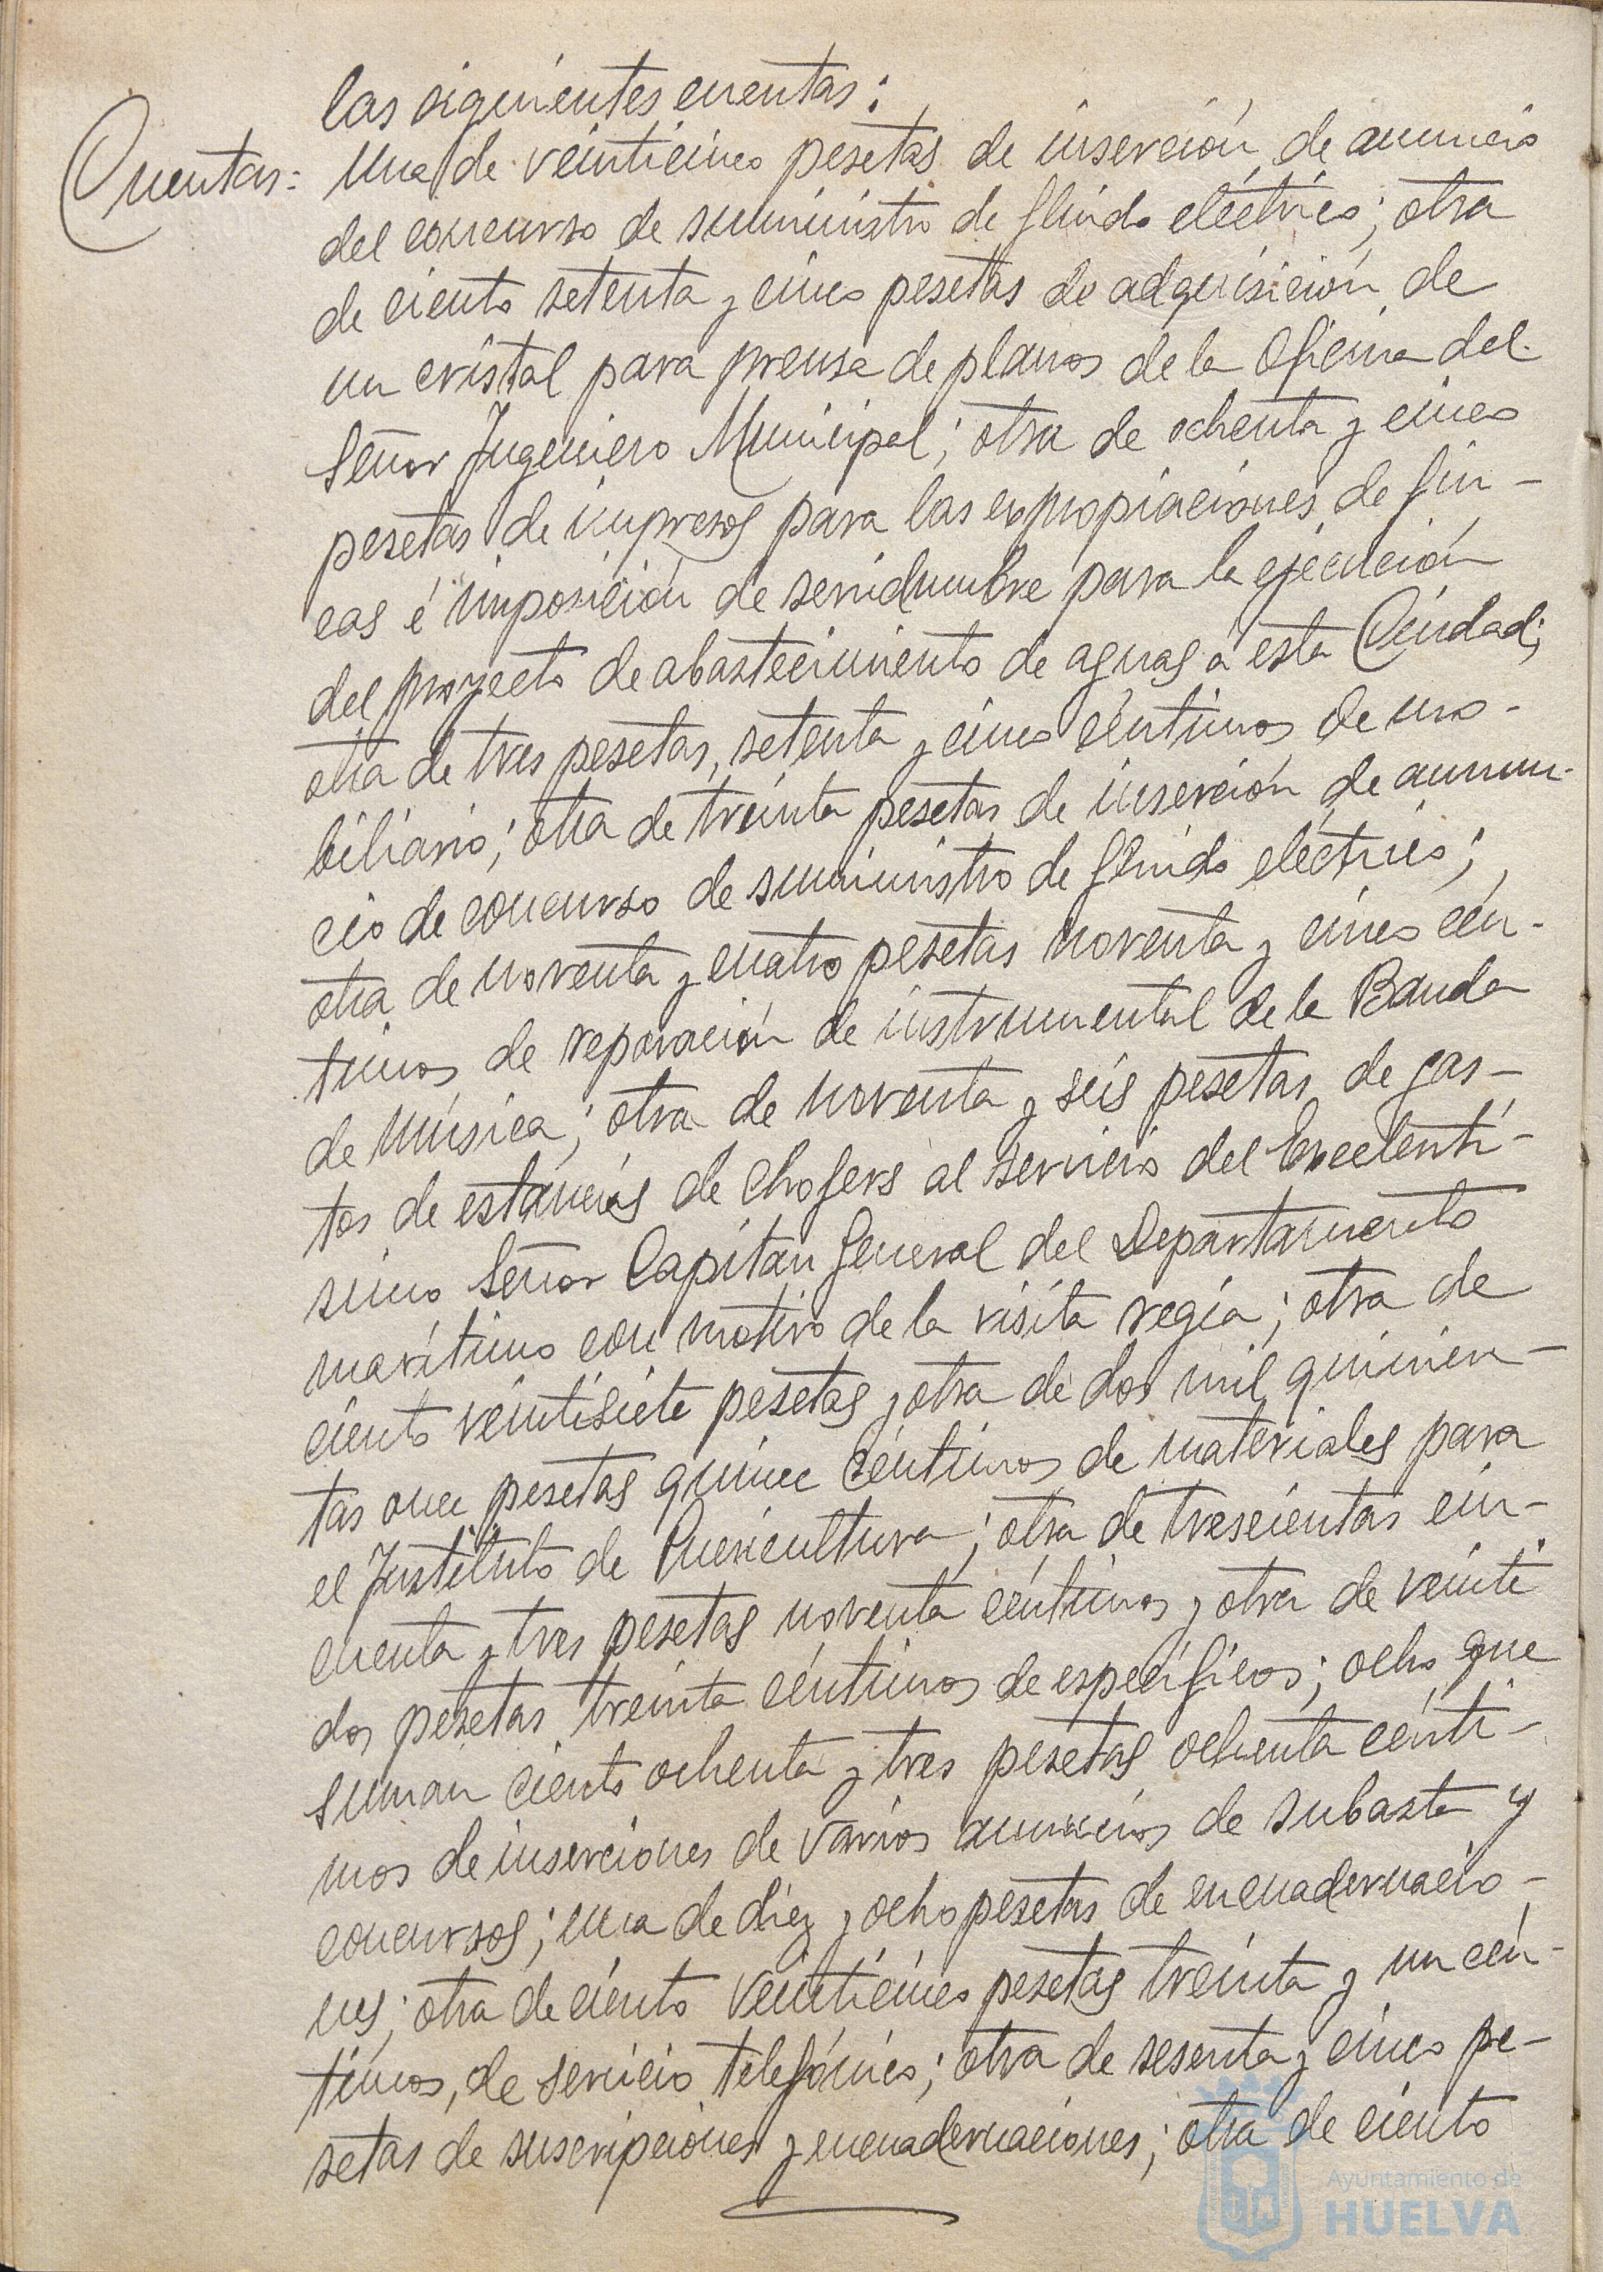 las siguientes cuentas:
Cuentas: Una de veinticinco pesetas de inserción de anuncio
del concurso de suministro de fluido eléctrico; otra
de ciento setenta y cinco pesetas de adquisición de
un cristal para prensa de planos de la Oficina del
Señor Ingeniero Municipal; otra de ochenta y cinco
pesetas de impresos para las expropiaciones de fin-
cas é imposición de servidumbre para la ejecución
del proyecto de abastecimiento de aguas á esta Ciudad;
otra de tres pesetas, setenta y cinco céntimos de mo-
biliario; otra de treinta pesetas de inserción de anun-
cio de concurso de suministro de fluido eléctrico;
otra de noventa y cuatro pesetas noventa y cinco cén-
timos de reparación de instrumental de la Banda
de música; otra de noventa y seis pesetas de gas-
tos de estancias de chofers al servicio del Excelentí-
simo Señor Capitan General del Departamento
marítimo con motivo de la visita regia; otra de
ciento veintisiete pesetas y otra de dos mil quinien-
tas once pesetas quince céntimos de materiales para
el Instituto de Puericultura; otra de trescientas cin-
cuenta y tres pesetas noventa céntimos y otra de veinti
dos pesetas treinta céntimos de específicos; ocho que
suman ciento ochenta y tres pesetas ochenta cénti-
mos de inserciones de varios anuncios de subasta y
concursos; una de diez y ocho pesetas de encuadernacio-
nes; otra de ciento veinticinco pesetas treinta y un cén-
timos, de servicio telefónico; otra de sesenta y cinco pe-
setas de suscripciones y encuadernaciones; otra de ciento
Ayuntamiento de
HUELVA